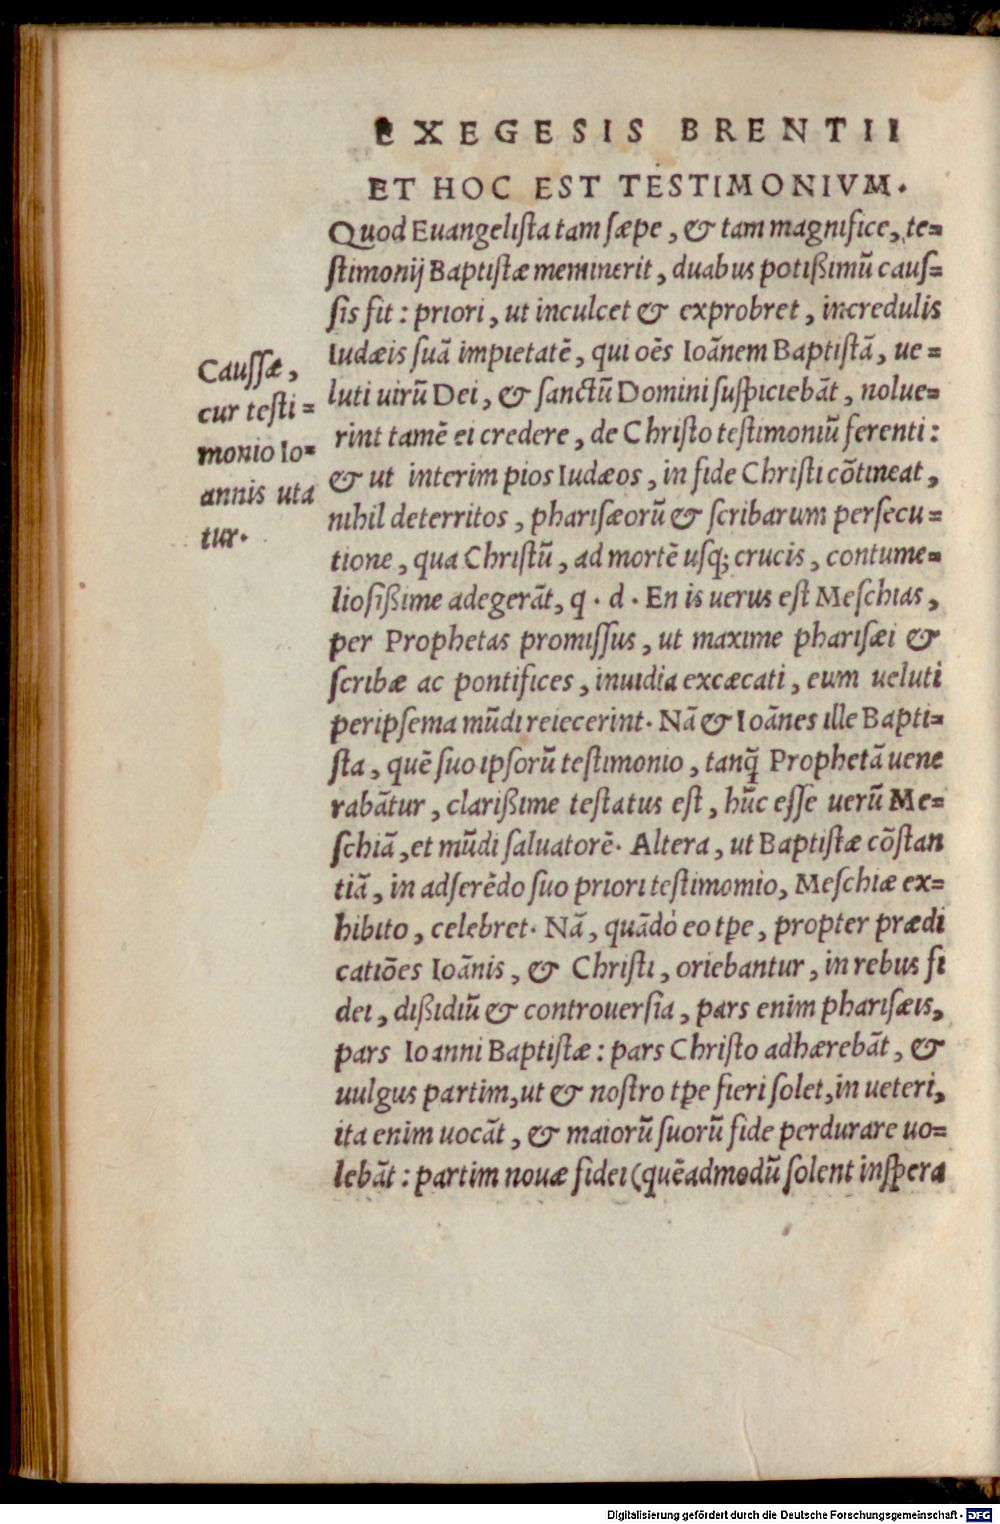 EXEGESIS BRENTII
ET HOC EST TESTIMONIVM.
Quod Euangeliſta tam ſæpe, & tam magnifice, te=
ſtimonij Baptiſtæ meminerit, duabus potißimū cauſ=
ſis fit : priori, ut inculcet & exprobret, incredulis
Iudæis ſuā impietatē, qui oēs Ioānem Baptiſtā, ue=
luti uirū Dei, & ſanctū Domini ſuſpiciebāt, nolue=
rint tamē ei credere, de Chriſto teſtimoniū ferenti :
& ut interim pios Iudæos, in fide Chriſti cōtineat,
nihil deterritos, phariſæorū & ſcribarum perſecu=
tione, qua Chriſtū, ad mortē uſq; crucis, contume=
lioſißime adegerāt, q. d. En is uerus eſt Meſchias,
per Prophetas promiſſus, ut maxime phariſæi &
ſcribæ ac pontifices, inuidia excæcati, eum ueluti
peripſema mūdi reiecerint. Nā & Ioānes ille Bapti=
ſta, quē ſuo ipſorū teſtimonio, tanq̄ Prophetā uene
rabātur, clarißime teſtatus eſt, hūc eſſe uerū Me=
ſchiā, et mūdi ſaluatorē. Altera, ut Baptiſtæ cōſtan
tiā, in adſerēdo ſuo priori teſtimomio, Meſchiæ ex=
hibito, celebret. Nā, quādó eo tp̄e, propter prædi
catiōes Ioānis, & Chriſti, oriebantur, in rebus fi
dei, dißidiū & controuerſia, pars enim phariſæis,
pars Ioanni Baptiſtæ : pars Chriſto adhærebāt, &
uulgus partim, ut & noſtro tp̄e fieri ſolet, in ueteri,
ita enim uocāt, & maiorū ſuorū fide perdurare uo=
lebāt : partim nouæ fidei (quēadmodū ſolent inſpera
Cauſſæ,
cur teſti=
monio Io=
annis uta
tur.
Digitalisierung gefördert durch die Deutsche Forschungsgemeinschaft - DFG